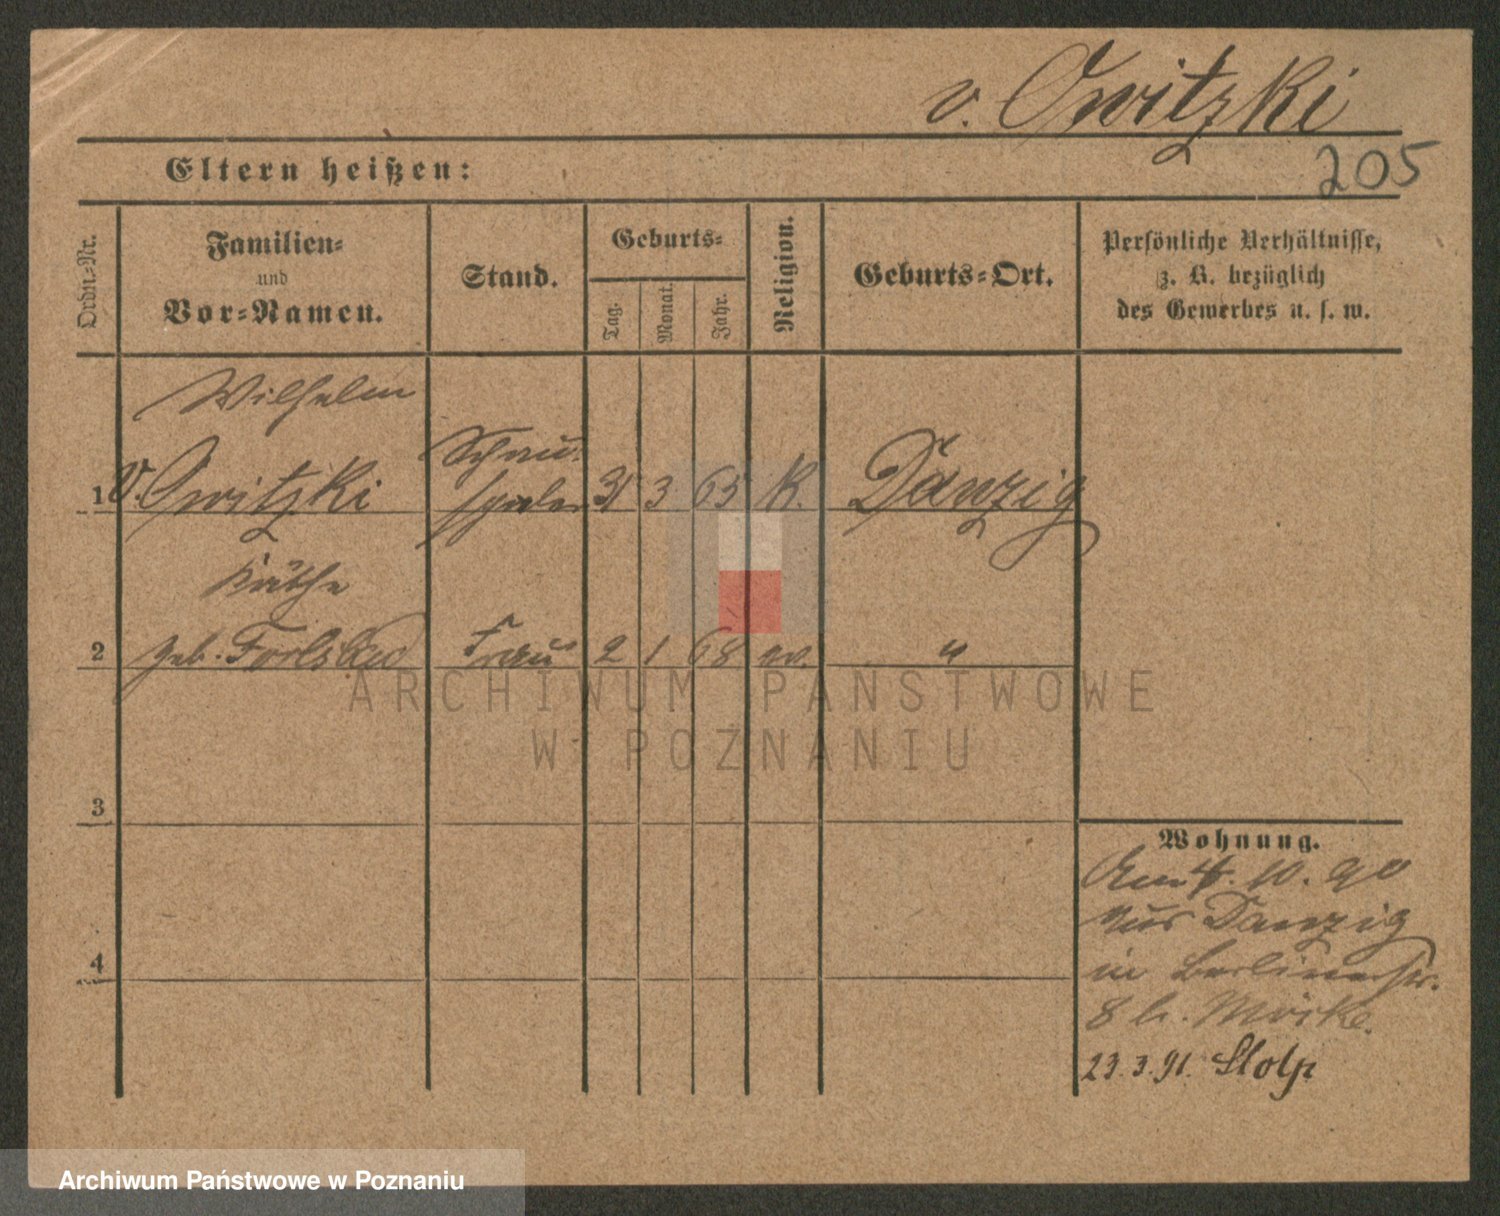 v. Owitzki
205
Eltern heißen:
Ordn.-Nr.
Familien-
und
Vor-Namen.
Stand.
Geburts-
Tag.
Monat.
Jahr.
Religion.
Geburts-Ort.
Persönliche Verhältnisse,
z. B. bezüglich
des Gewerbes u. s. w.
Wilhelm
Schau-
1 v. Owitzki spieler 31 3 65 K. Danzig
Käthe
2 geb. Frau 2 1 68 ev. "
3
4
Wohnung.
10. 90
aus Danzig
in Berlinerstr.
8 b.
23.3.91. Stolp
ARCHIWUM PAŃSTWOWE
W POZNANIU
Archiwum Państwowe w Poznaniu